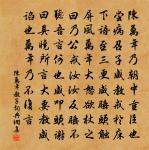 陳萬年乃朝中重臣也
嘗病召子咸教戒於床
下語至三更咸睡頭觸
屏風萬年大怒欲杖之
曰乃公戒汝汝反睡不
聽吾言何也咸叩頭謝
曰具曉所言大要教咸
諂也萬年乃不復言
陳萬年教子詞典網集